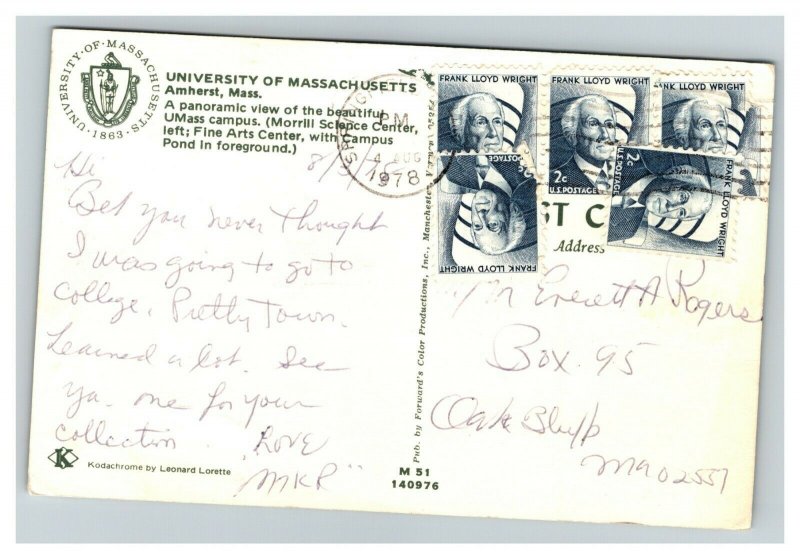 UNIVERSITY·OF·MASSACHUSETTS
·1863·
UNIVERSITY OF MASSACHUSETTS
Amherst, Mass.
A panoramic view of the beautiful
UMass campus. (Morrill Science Center,
left; Fine Arts Center, with Campus
Pond in foreground.)
Hi
Bet you never thought
I was going to go to
college. Pretty Town.
Learned a lot. See
ya. one for your
collection.
Love
MKR
Kodachrome by Leonard Lorette
K
Pub. by Forward's Color Productions, Inc., Manchester, Vermont
M 51
140976
PM
4 AUG
1978
FRANK LLOYD WRIGHT
FRANK LLOYD WRIGHT
2c
U.S.POSTAGE
FRANK LLOYD WRIGHT
U.S.POSTAGE
FRANK LLOYD WRIGHT
2c
U.S.POSTAGE
FRANK LLOYD WRIGHT
ST C
Address
Mr Everett A Rogers
Box 95
Oak Bluff
Ma 02557